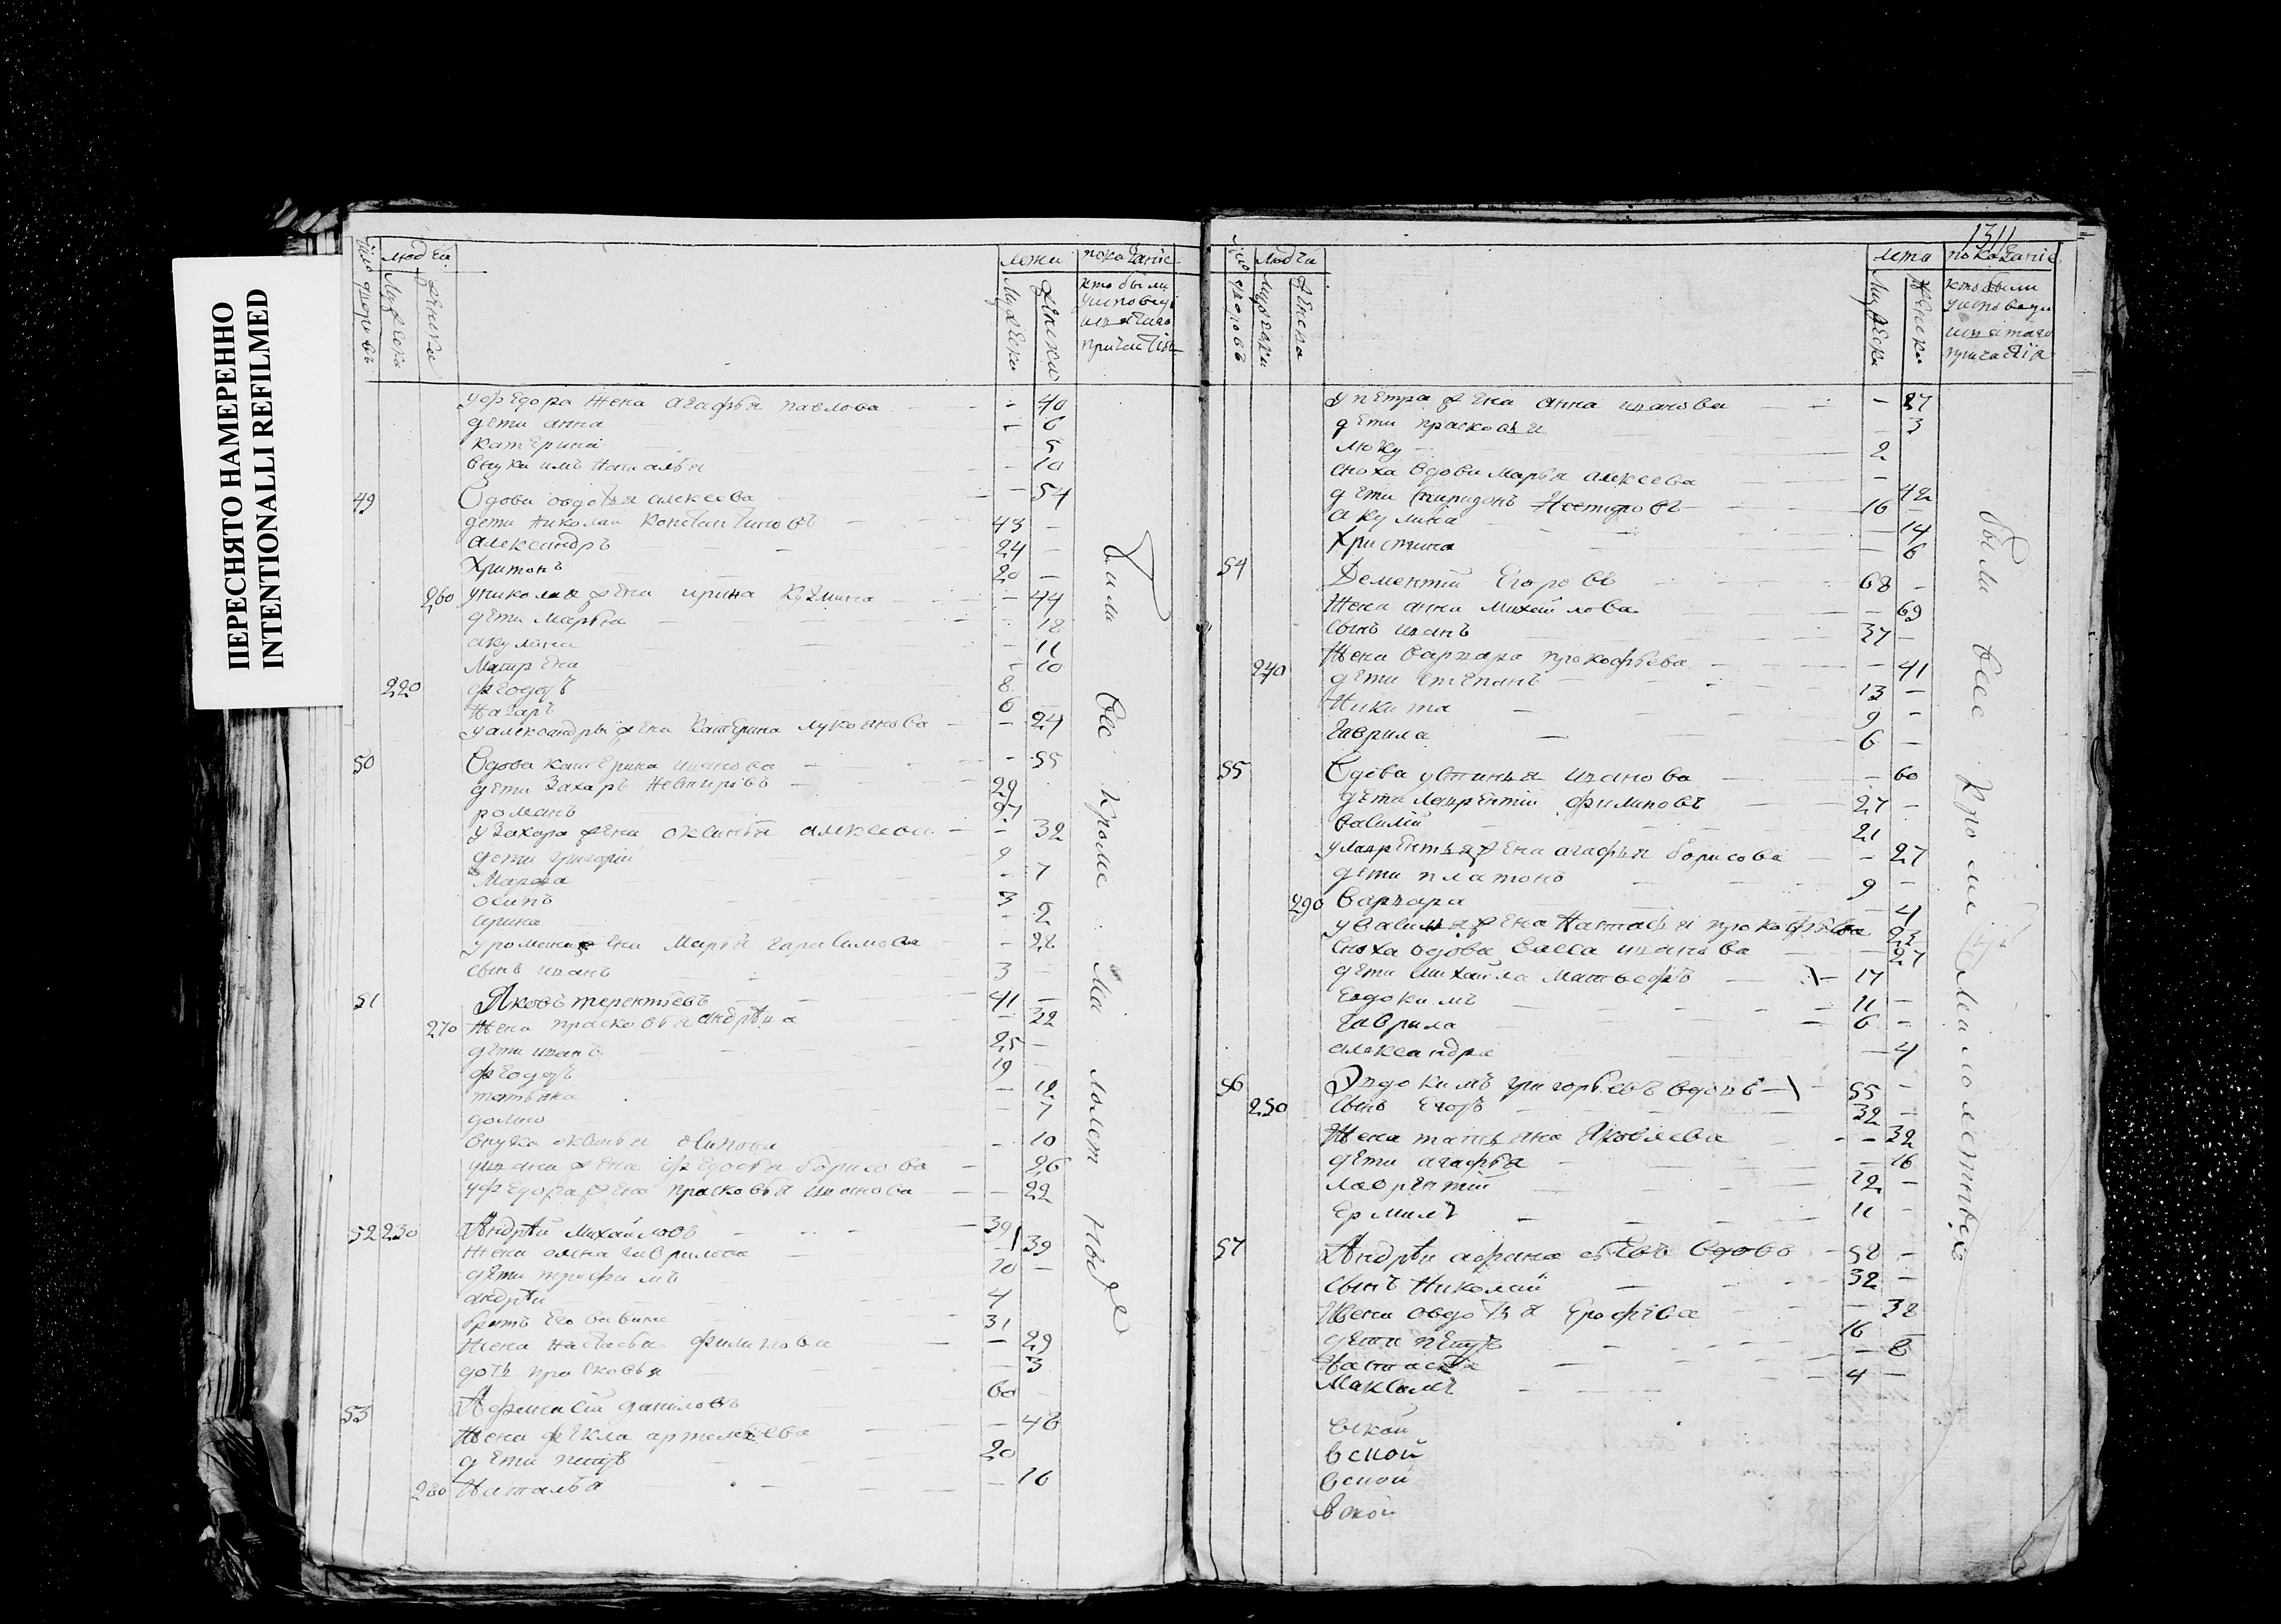 ПЕРЕСНЯТО НАМЕРЕННО
INTENTIONALLI REFILMED
число дворовъ
людей
мужеска
женска
лета
мужеска
женска
показание
кто были
у исповеди
и святаго
причастия
у федора жена агафья павлова — — 40
дети анна — 6
катерина — 5
внука имъ наталья — 10
49 Вдова овдотья алексева — 54
дети николай константиновъ 43 —
александръ 24 —
Харитонъ 20 —
260 у николая жена ирина кузмина — 44
дети марья — 18
акулина — 11
Мавр — 10
220 феодоръ 8
Назаръ 6
у александры жена катерина лукоянова — 24
50 Вдова катерина иванова — 55
дети Захаръ 29
романъ 27
у захара жена оксинья алексеева — 32
дети григорий 9
Марфа — 7
осипъ 3
ирина — 2
у романа жена Марья гарасимова — 28
сынъ иванъ 3
51 Яковъ терентьевъ 41 —
270 жена прасковья андрѣева — 32
дети иванъ 25 —
феодоръ 19
татьяна — 12
7
внука оксинья осипова — 10
у ивана жена федосья борисова — 26
у федора жена прасковья иванова — 22
52 230 Андрѣй михайловъ 39
жена олена гаврилова — 39
дѣти трофимъ 10 —
андрѣй 4
братъ его вавила 31
жена настасья филипова — 29
дочь прасковья — 3
53 Афанасий даниловъ 60
жена фекла артемьева — 46
дѣти петръ 20
280 Наталья — 16
были все кроме малолетныхъ
1311
число дворовъ
людей
мужеска
женска
лета
мужеска
женска
показание
кто были
у исповеди
и святаго
причастия
у петра жена анна иванова — 27
дети прасковья — 3
2
сноха вдова марья алексева — 42
дети спиридонъ 16 —
акулина — 14
Христина — 6
54 Дементий Егоровъ 68 —
жена анна михайлова — 69
сынъ иванъ 37 —
жена варвара прокофьева — 41
240 дети степанъ 13 —
Никита 9 —
гаврила 6 —
55 Вдова устинья иванова — 60
дети лаврентий филиповъ 27 —
василий 21
у лаврентья жена агафья борисова — 27
дети платонъ 9 —
290 варвара — 4
у василья жена настасья прокофьева 23
сноха вдова васса иванова — 27
дети михайла матвеефъ 17
Евдокимъ 11 —
гаврила 6 —
александра — 4
56 Эвдокимъ григорьевъ вдовъ 55 —
250 сынъ Егоръ 32 —
жена татьяна яковлева — 32
дети агафья — 16
лаврентий 12 —
Ермилъ 11 —
57 Андрѣй афанасьевъ вдовъ 58 —
сынъ николай 32 —
жена овдотья Ерофѣева — 38
дети петръ 16
настасья — 8
Максимъ 4 —
вской
вской
вской
вской
были все кроме малолетнихъ